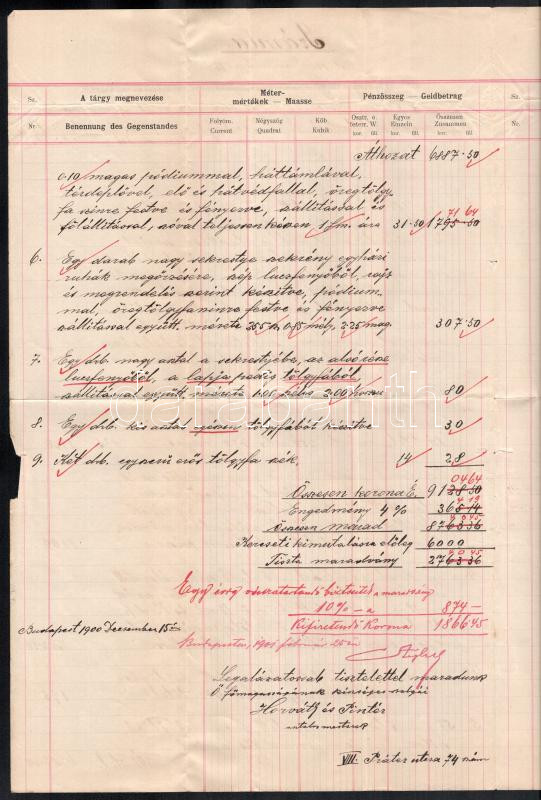 Számla
Sz. A tárgy megnevezése Méter- mértékek — Maasse Pénzösszeg — Geldbetrag Sz.
Nr. Benennung des Gegenstandes Folyóm. Current Négyszög Quadrat Köb Kubik Osztr. é. Oesterr. W. kor. fill. Egyes Einzeln kor. fill. Összesen Zusammen kor. fill. Nr.
Áthozat 6887·50
0·10 magas pódiummal, háttámlával,
térdeplővel, elő és hátvédfallal, öregtölgy
fa szinre festve és fényezve, szállitással és
fölállitással, szóval teljesen készen, 1 fm. ára 31·50 1795·50
71 64
6. Egy darab nagy sekrestye szekrény egyházi
ruhák megőrzésére, szép luczfenyőből, rajz
és megrendelés szerint készitve, pódium-
mal, öregtölgyfaszinre festve és fényezve
szállitással együtt. mérete 255 0·85 mély, 2·25 mag. 307·50
7. Egy drb. nagy asztal a sekrestyébe, az alsó része
luczfenyőből, a lapja pedig tölgyfából
szállitással együtt. mérete 1·05 széles 2·00 hosszu 80
8. Egy drb. kis asztal egészen tölgyfából készitve 30
9. Két drb. egyszerü erős tölgyfa szék. 14 28
04 64
Összesen korona É. 9128·50
Engedmény 4% 365·14
Összesen marad 8763·36
40 45
Kereseti kimutatásra előleg 6000
Tiszta maradvány 2763·36
40 45
Egy évig visszatartandó biztositék a maradvány
10%-a 874 —
Kifizetendő Korona 1866 45
Budapest 1900 December 15én
Budapesten, 1901 február 25én
Legalázatosabb tisztelettel maradunk
Ő főmagasságának készséges szolgái
Horváth és Pintér
asztalosmesterek
VIII. Práter utcza 74 szám
darabanth